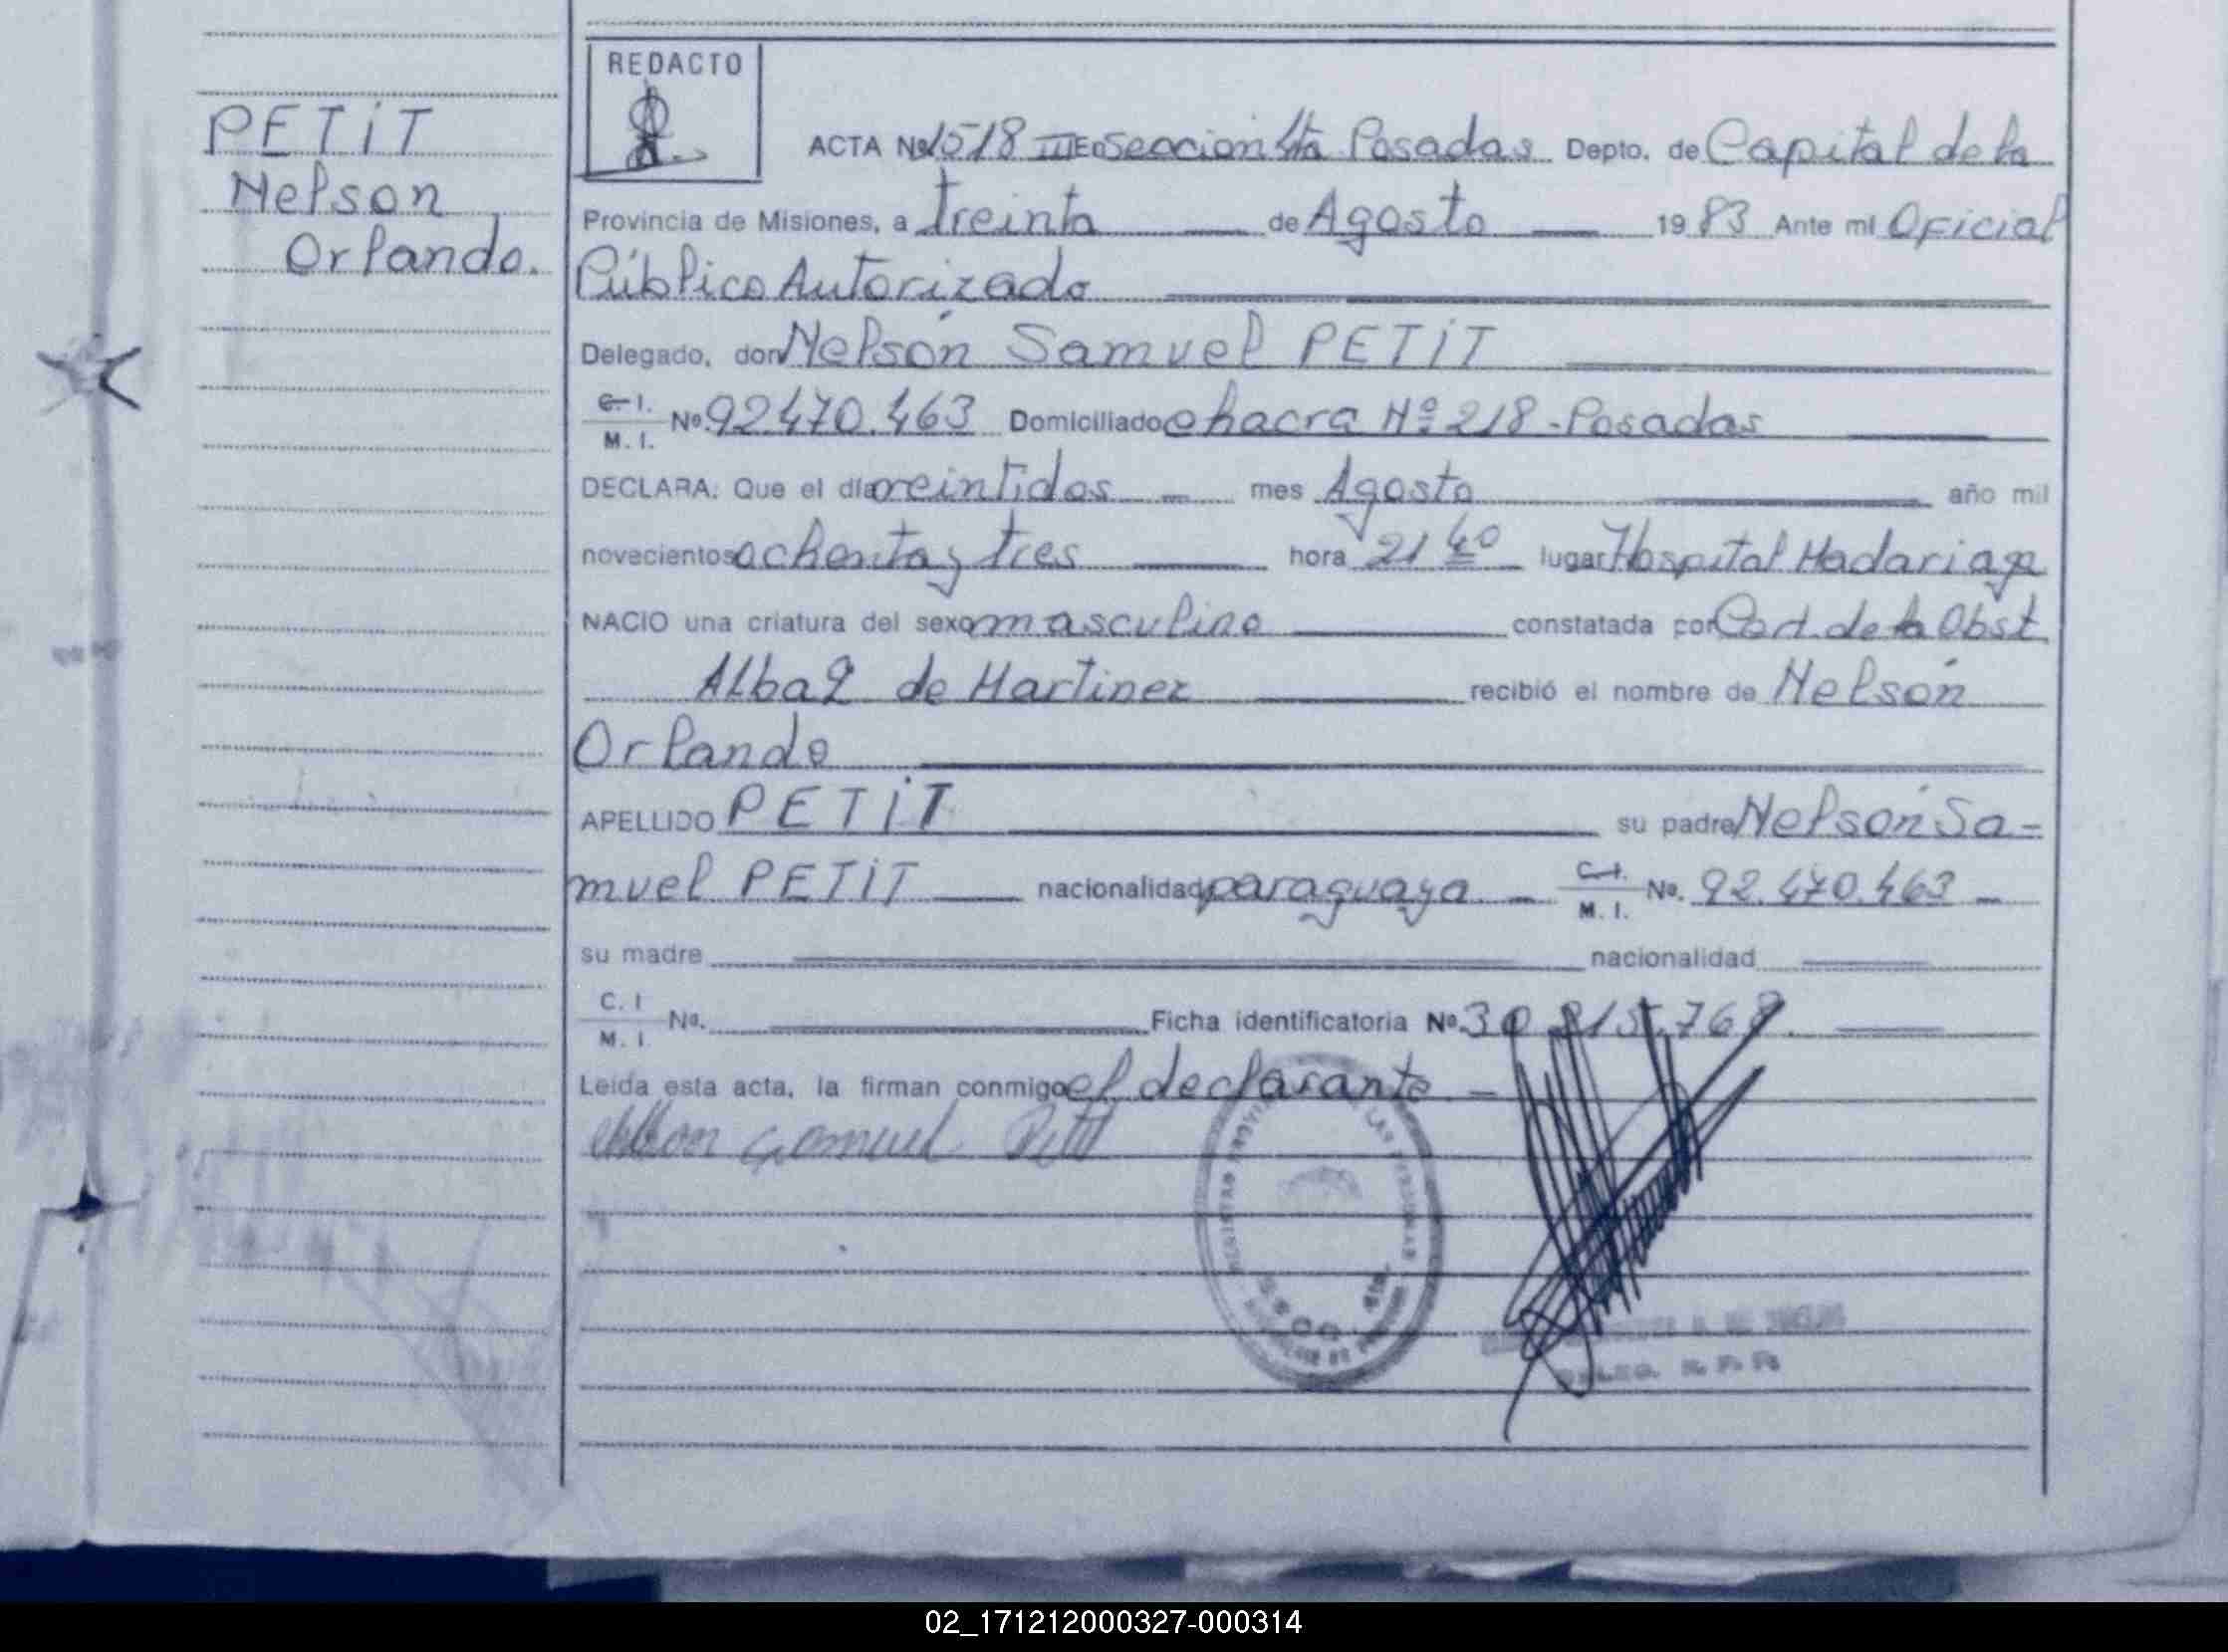 REDACTO
PETIT
Nelson
Orlando.
ACTA Nº 1518 III En Seccion 4ta Posadas Depto. de Capital de la
Provincia de Misiones, a treinta de Agosto 1983 Ante mi Oficial
Público Autorizado
Delegado, don Nelsón Samuel PETIT
C. I.
M. I. Nº 92.470.463 Domiciliado chacra Nº 218 - Posadas
DECLARA: Que el día veintidos mes Agosto año mil
novecientos ochenta y tres hora 21 40 lugar Hospital Madariaga
NACIO una criatura del sexo masculino constatada por Cert. de la Obst
Alba de Martinez recibió el nombre de Nelsón
Orlando
APELLIDO PETIT su padre Nelsón Sa-
muel PETIT nacionalidad paraguaya - C. I.
M. I. Nº. 92.470.463 -
su madre nacionalidad
C. I
M. I. Nº. Ficha identificatoria Nº 30
Leida esta acta, la firman conmigo el declarante. -
Samuel Petit
02_171212000327-000314